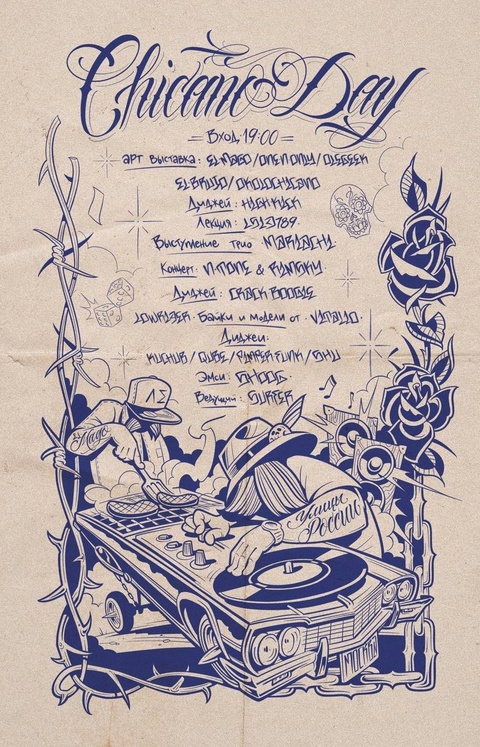 Chicano Day
= Вход 19:00 =
арт выставка: ELMAGO / ONEMONLU / OLEGEEK
ELBRUJO / OKOLOCHICANO
Диджей: HIGHKICK
Лекция: 1313789.
Выступление трио MARIACHI.
Концерт: N-TONE & RUMAKU.
Диджей: CRACK BOOGIE
LOWRIDER. Байки и модели от. VITALLO.
Диджеи:
KUCHUB / QUBE / PUMPER FUNK / GHU
Эмси: GHOOD.
Ведущий: SURFER
Маде
Улицы
России